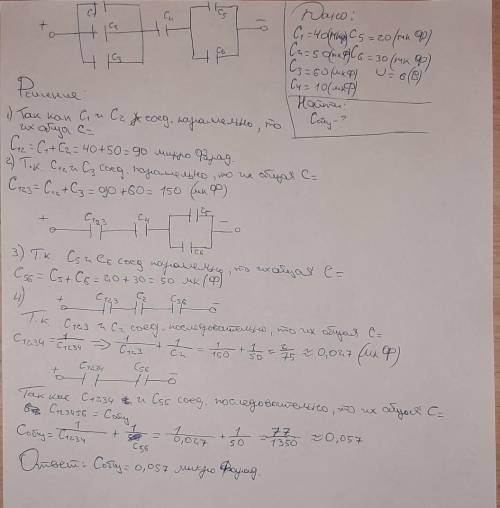 C₁
C₅
+ C₂ C₄ −
C₃ C₆
Дано:
C₁=40(мкФ) C₅=20(мк Ф)
C₂=50(мкФ) C₆=30(мк Ф)
C₃=60(мкФ) U=6(В)
C₄=10(мкФ)
Найти:
Cобщ-?
Решение:
1) Так как C₁ и C₂ соед. паралельно, то
их общая C=
C₁₂=C₁+C₂=40+50=90 микро Фарад.
2) Т.к C₁₂ и C₃ соед. паралельно, то их общая C=
C₁₂₃=C₁₂+C₃=90+60=150 (мк Ф)
+ C₁₂₃ C₄ C₅ −
C₆
3) Т.к C₅ и C₆ соед паралельно, то их общая C=
C₅₆=C₅+C₆=20+30=50 мк(Ф)
4) + C₁₂₃ C₂ C₅₆ −
Т.к C₁₂₃ и C₂ соед. последовательно, то их общая C=
C₁₂₃₄=1/C₁₂₃₄ ⇒ 1/C₁₂₃ + 1/C₂ = 1/150 + 1/50 = 2/75 ≈ 0,027 (мк Ф)
+ C₁₂₃₄ C₅₆ −
Так как C₁₂₃₄ и C₅₆ соед. последовательно, то их общая C=
C₁₂₃₄₅₆=Cобщ
Cобщ=1/C₁₂₃₄ + 1/C₅₆ = 1/0,027 + 1/50 = 77/1350 ≈ 0,057
Ответ: Cобщ=0,057 микро Фарад.